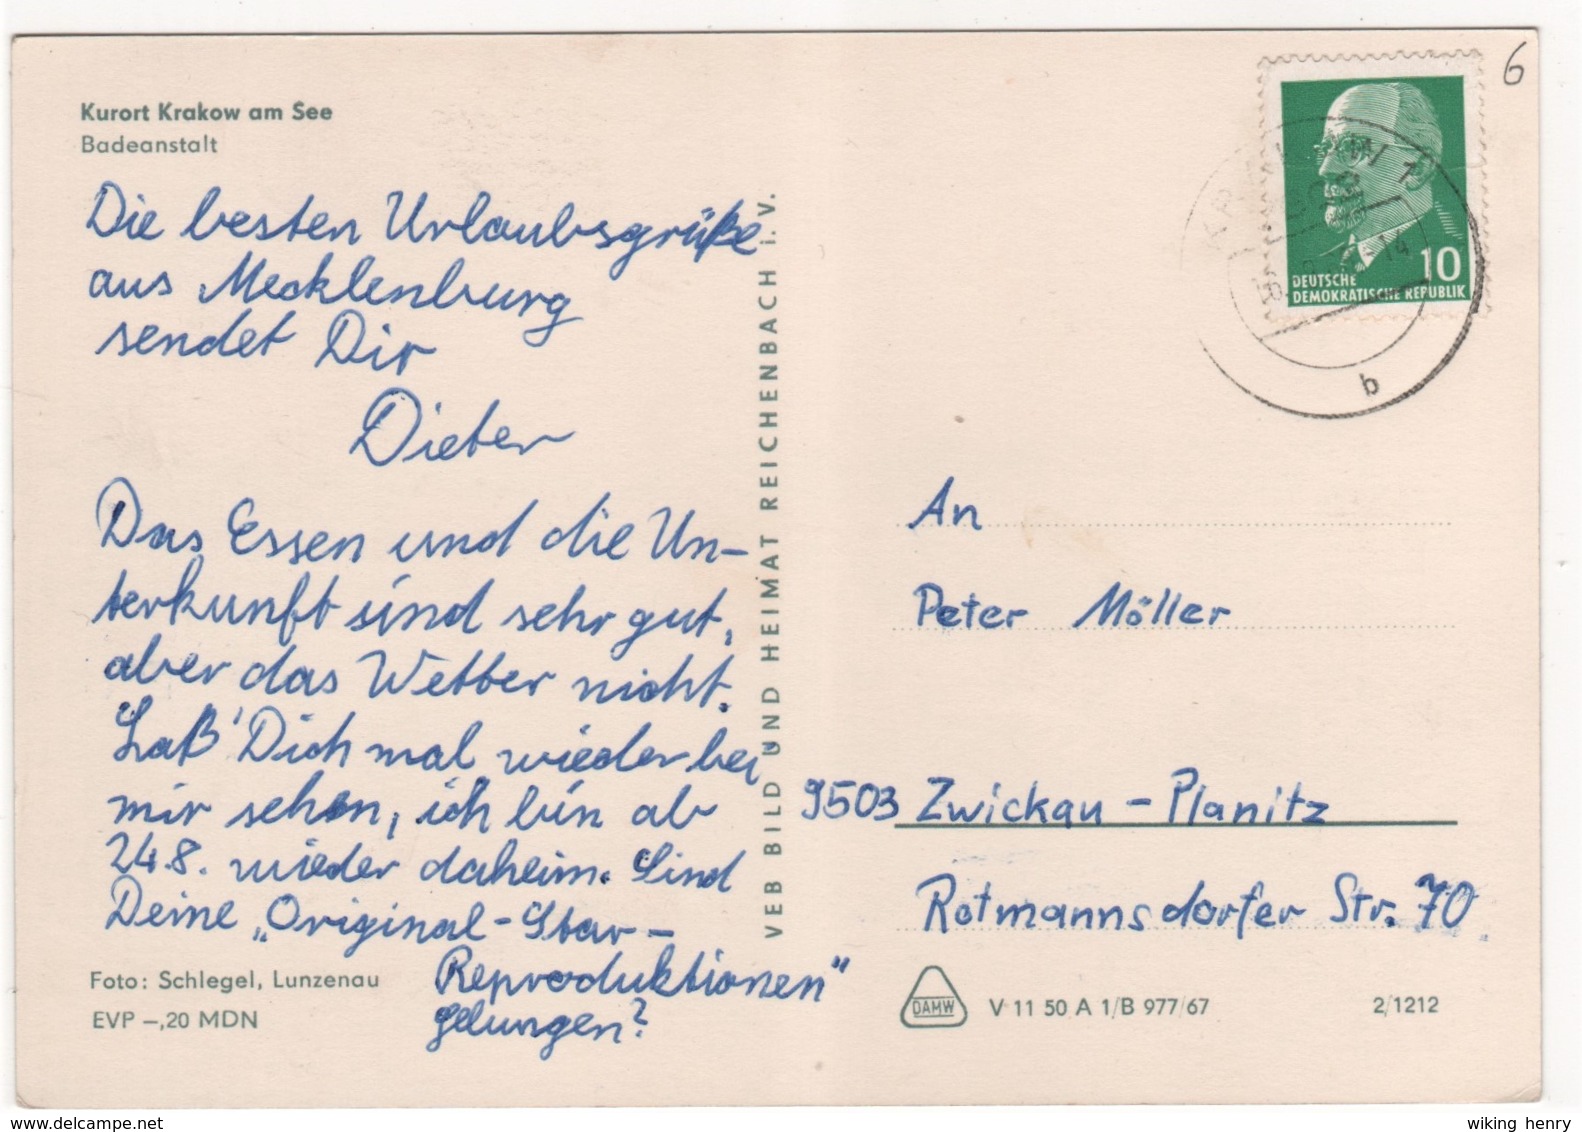 Kurort Krakow am See
Badeanstalt
Die besten Urlaubsgrüße
aus Mecklenburg
sendet Dir
Dieter
Das Essen und die Un-
terkunft sind sehr gut,
aber das Wetter nicht.
Laß' Dich mal wieder bei
mir sehen, ich bin ab
24.8. wieder daheim. Sind
Deine „Original-Star-
Reproduktionen"
gelungen?
Foto: Schlegel, Lunzenau
EVP –,20 MDN
VEB BILD UND HEIMAT REICHENBACH i. V.
6
10
DEUTSCHE
DEMOKRATISCHE REPUBLIK
14
b
An
Peter Möller
9503 Zwickau – Planitz
Rotmannsdorfer Str. 70
DAMW
V 11 50 A 1/B 977/67
2/1212
www.delcampe.net
wiking henry